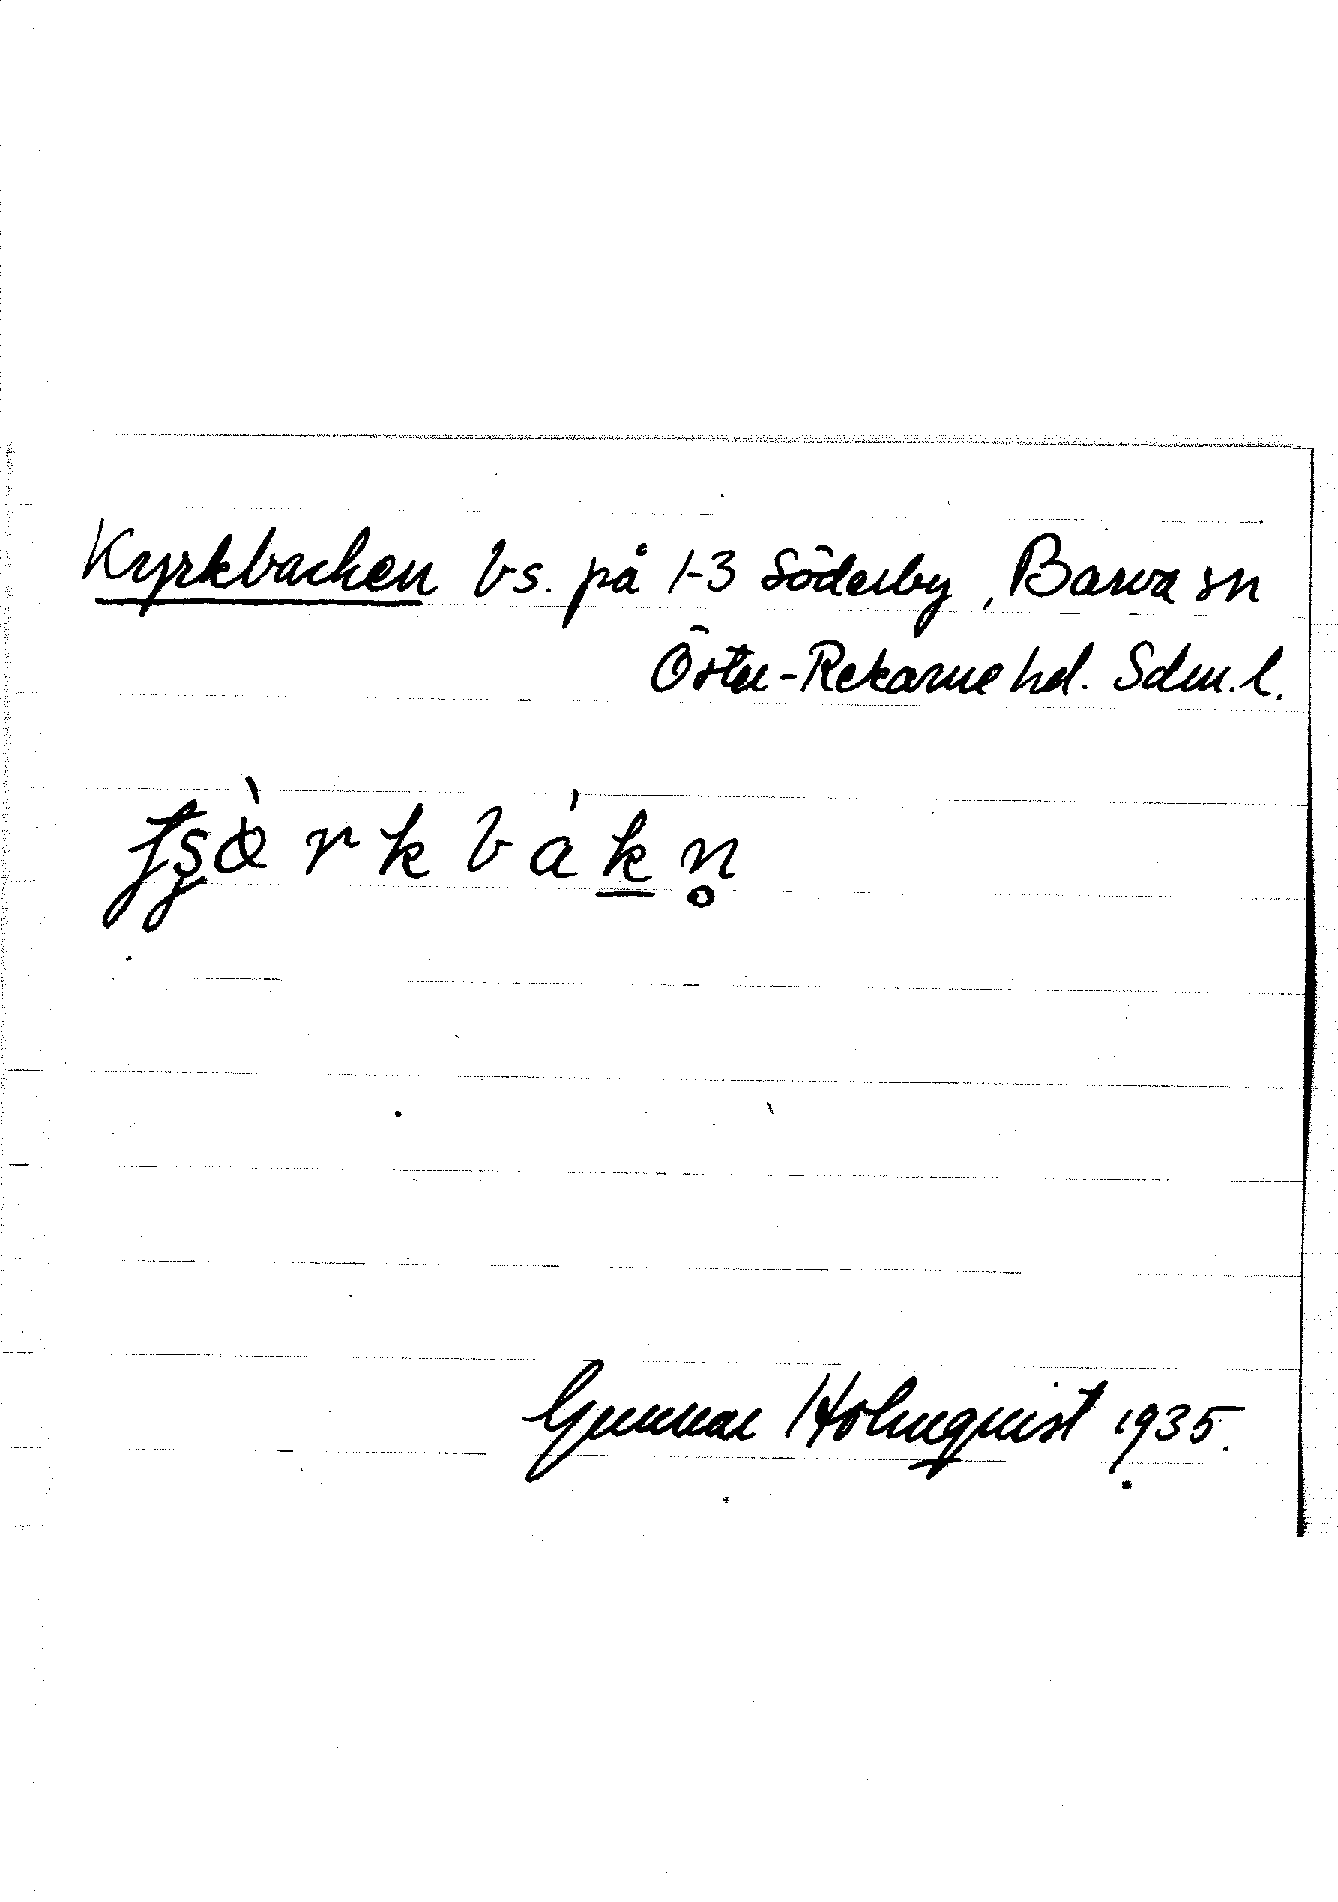 Kyrkbacken bs. på 1-3 Söderby, Barva sn
Öster-Rekarne hd. Sdm. l.
tʂɵ̀rkbák̲n̥
Gunnar Holmquist 1935.